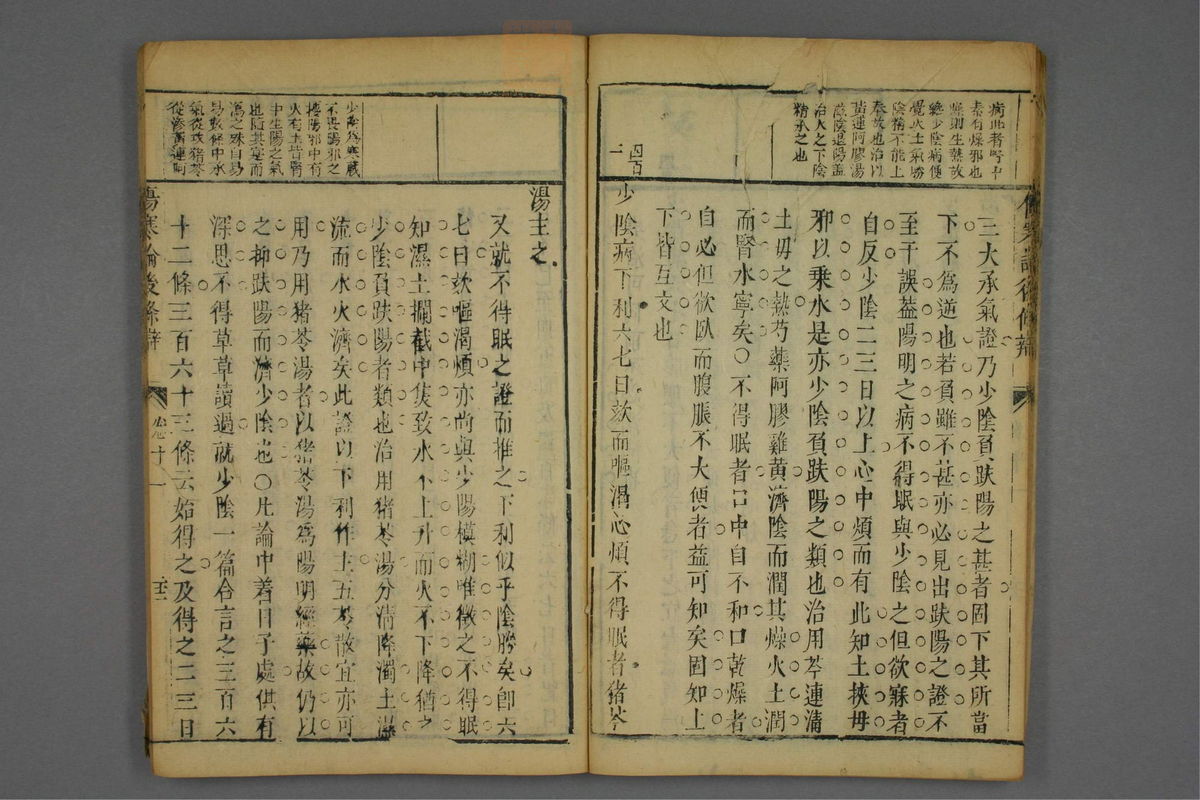 病此者腎中
素有燥邪也
燥則生熱故
纔少陰病便
覺火土氣勝
陰精不能上
奉故也治以
黃連阿膠湯
滋陰退陽蓋
治火之下陰
精承之也
四百
一
三大承氣證乃少陰負趺陽之甚者固下其所當
下不爲逆也若負雖不甚亦必見出趺陽之證不
至于誤蓋陽明之病不得眠與少陰之但欲寐者
自反少陰二三日以上心中煩而有此知土挾母
邪以乘水是亦少陰負趺陽之類也治用芩連瀉
土母之熱芍藥阿膠雞黃濟陰而潤其燥火土潤
而腎水寧矣○不得眠者口中自不和口乾燥者
自必但欲臥而腹脹不大便者益可知矣固知上
下皆互文也
少陰病下利六七日欬而嘔渴心煩不得眠者豬苓
少陰爲寒藏
不畏陽邪之
撓陽邪中有
火有土昔腎
中生陽之氣
也隨其寔而
瀉之殊自易
易數條中承
氣從攻豬苓
從滲黃連阿
湯主之
又就不得眠之證而推之下利似乎陰勝矣卽六
七日欬嘔渴煩亦尚與少陽模糊唯徵之不得眠
知濕土攔截中焦致水不上升而火不下降猶之
少陰負趺陽者類也治用豬苓湯分清降濁土滋
流而水火濟矣此證以下利作主五苓散宜亦可
用乃用豬苓湯者以豬苓湯爲陽明經藥故仍以
之抑趺陽而濟少陰也○凡論中著日子處俱有
深思不得草草讀過就少陰一篇合言之三百六
十二條三百六十三條云始得之及得之二三日
傷寒論後條辯
卷十一